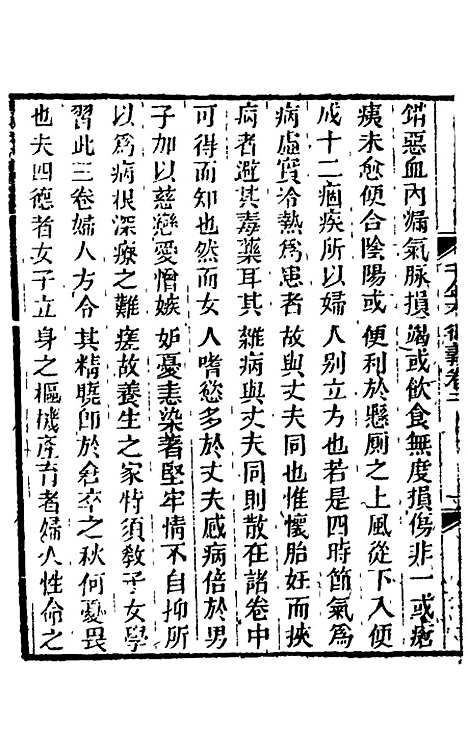 錯惡血內漏氣脉損竭或飲食無度損傷非一或瘡
痍未愈便合陰陽或便利於懸厠之上風從下入便
成十二痼疾所以婦人別立方也若是四時節氣爲
病虛實冷熱爲患者故與丈夫同也惟懷胎妊而挾
病者避其毒藥耳其雜病與丈夫同則散在諸卷中
可得而知也然而女人嗜慾多於丈夫感病倍於男
子加以慈戀愛憎嫉妒憂恚染著堅牢情不自抑所
以爲病根深療之難瘥故養生之家特須教子女學
習此三卷婦人方令其精曉即於倉卒之秋何憂畏
也夫四德者女子立身之樞機產育者婦人性命之
千金方衍義卷二